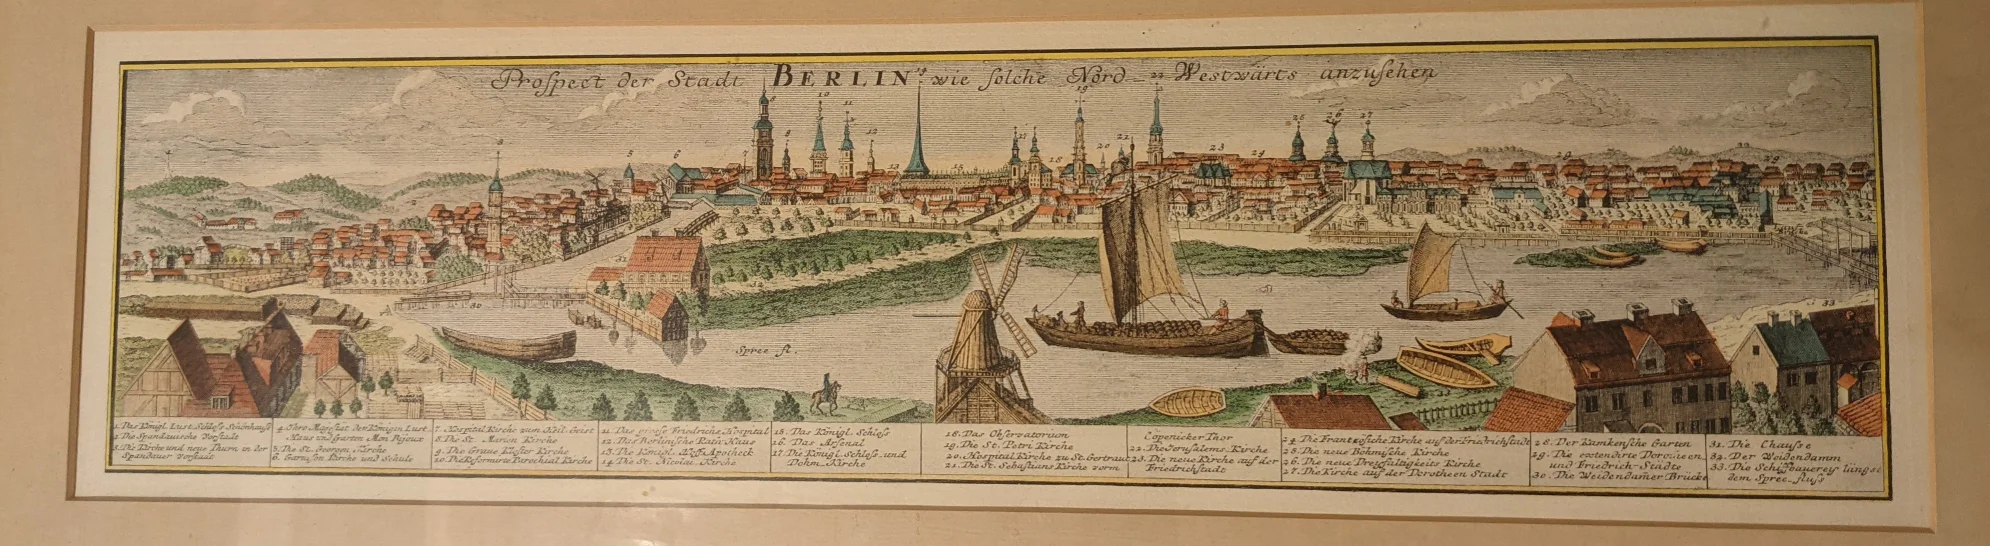 Prospect der Stadt BERLIN wie solche Nord Westwärts anzusehen
Spree fl.
1. Das Königl. Lust Schloss Schönhauss
2. Die Spandauische Vorstadt
3. Die Kirche und neue Thurn in der
Spandauer Vorstadt
4. Ihro Majestät der Königin Lust
Haus und Garten Mon Bijoux
5. Die St. Georgen Kirche
6. Garnison Kirche und Schule
7. Hospital Kirche zum Heil. Geist
8. Die St. Marien Kirche
9. Die Graue Kloster Kirche
10. Die Reformirte Parochial Kirche
11. Das grosse Friedrichs Hospital
12. Das Berlinische Rath Haus
13. Die Königl. Hoff Apotheck
14. Die St. Nicolai Kirche
15. Das Königl. Schloss
16. Das Arsenal
17. Die Königl. Schloss und
Dohm Kirche
18. Das Observatorium
19. Die St. Petri Kirche
20. Hospital Kirche zu St. Gertraut
21. Die St. Sebastians Kirche vorm
Cöpenicker Thor
22. Die Jerusalems Kirche
23. Die neue Kirche auf der
Friedrichstadt
24. Die Französische Kirche auf der Friedrichstadt
25. Die neue Böhmische Kirche
26. Die neue Dreyfaltigkeits Kirche
27. Die Kirche auf der Dorotheen Stadt
28. Der Kamkensche Garten
29. Die extendirte Dorotheen
und Friedrich-Stadte
30. Die Weidendamer Brücke
31. Die Chausse
32. Der Weidendamm
33. Die Schiffbauerey längst
dem Spree fluss